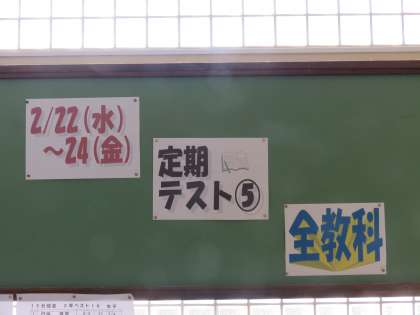 2/22(水)
～24(金)
定期
テスト⑤
全教科